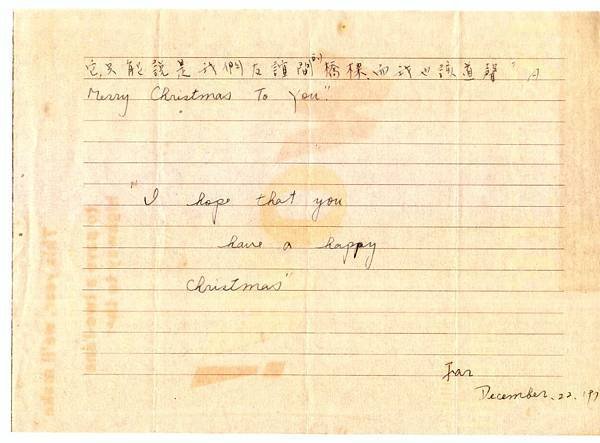 它只能說是我們友誼間的橋樑,而我也該道聲"
Merry Christmas To You".
"I hope that you
have a happy
Christmas"
December. 22. 19